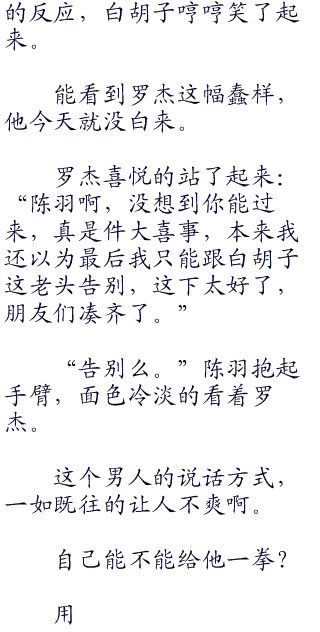 的反应，白胡子哼哼笑了起
来。
能看到罗杰这幅蠢样，
他今天就没白来。
罗杰喜悦的站了起来：
“陈羽啊，没想到你能过
来，真是件大喜事，本来我
还以为最后我只能跟白胡子
这老头告别，这下太好了，
朋友们凑齐了。”
“告别么。”陈羽抱起
手臂，面色冷淡的看着罗
杰。
这个男人的说话方式，
一如既往的让人不爽啊。
自己能不能给他一拳？
用